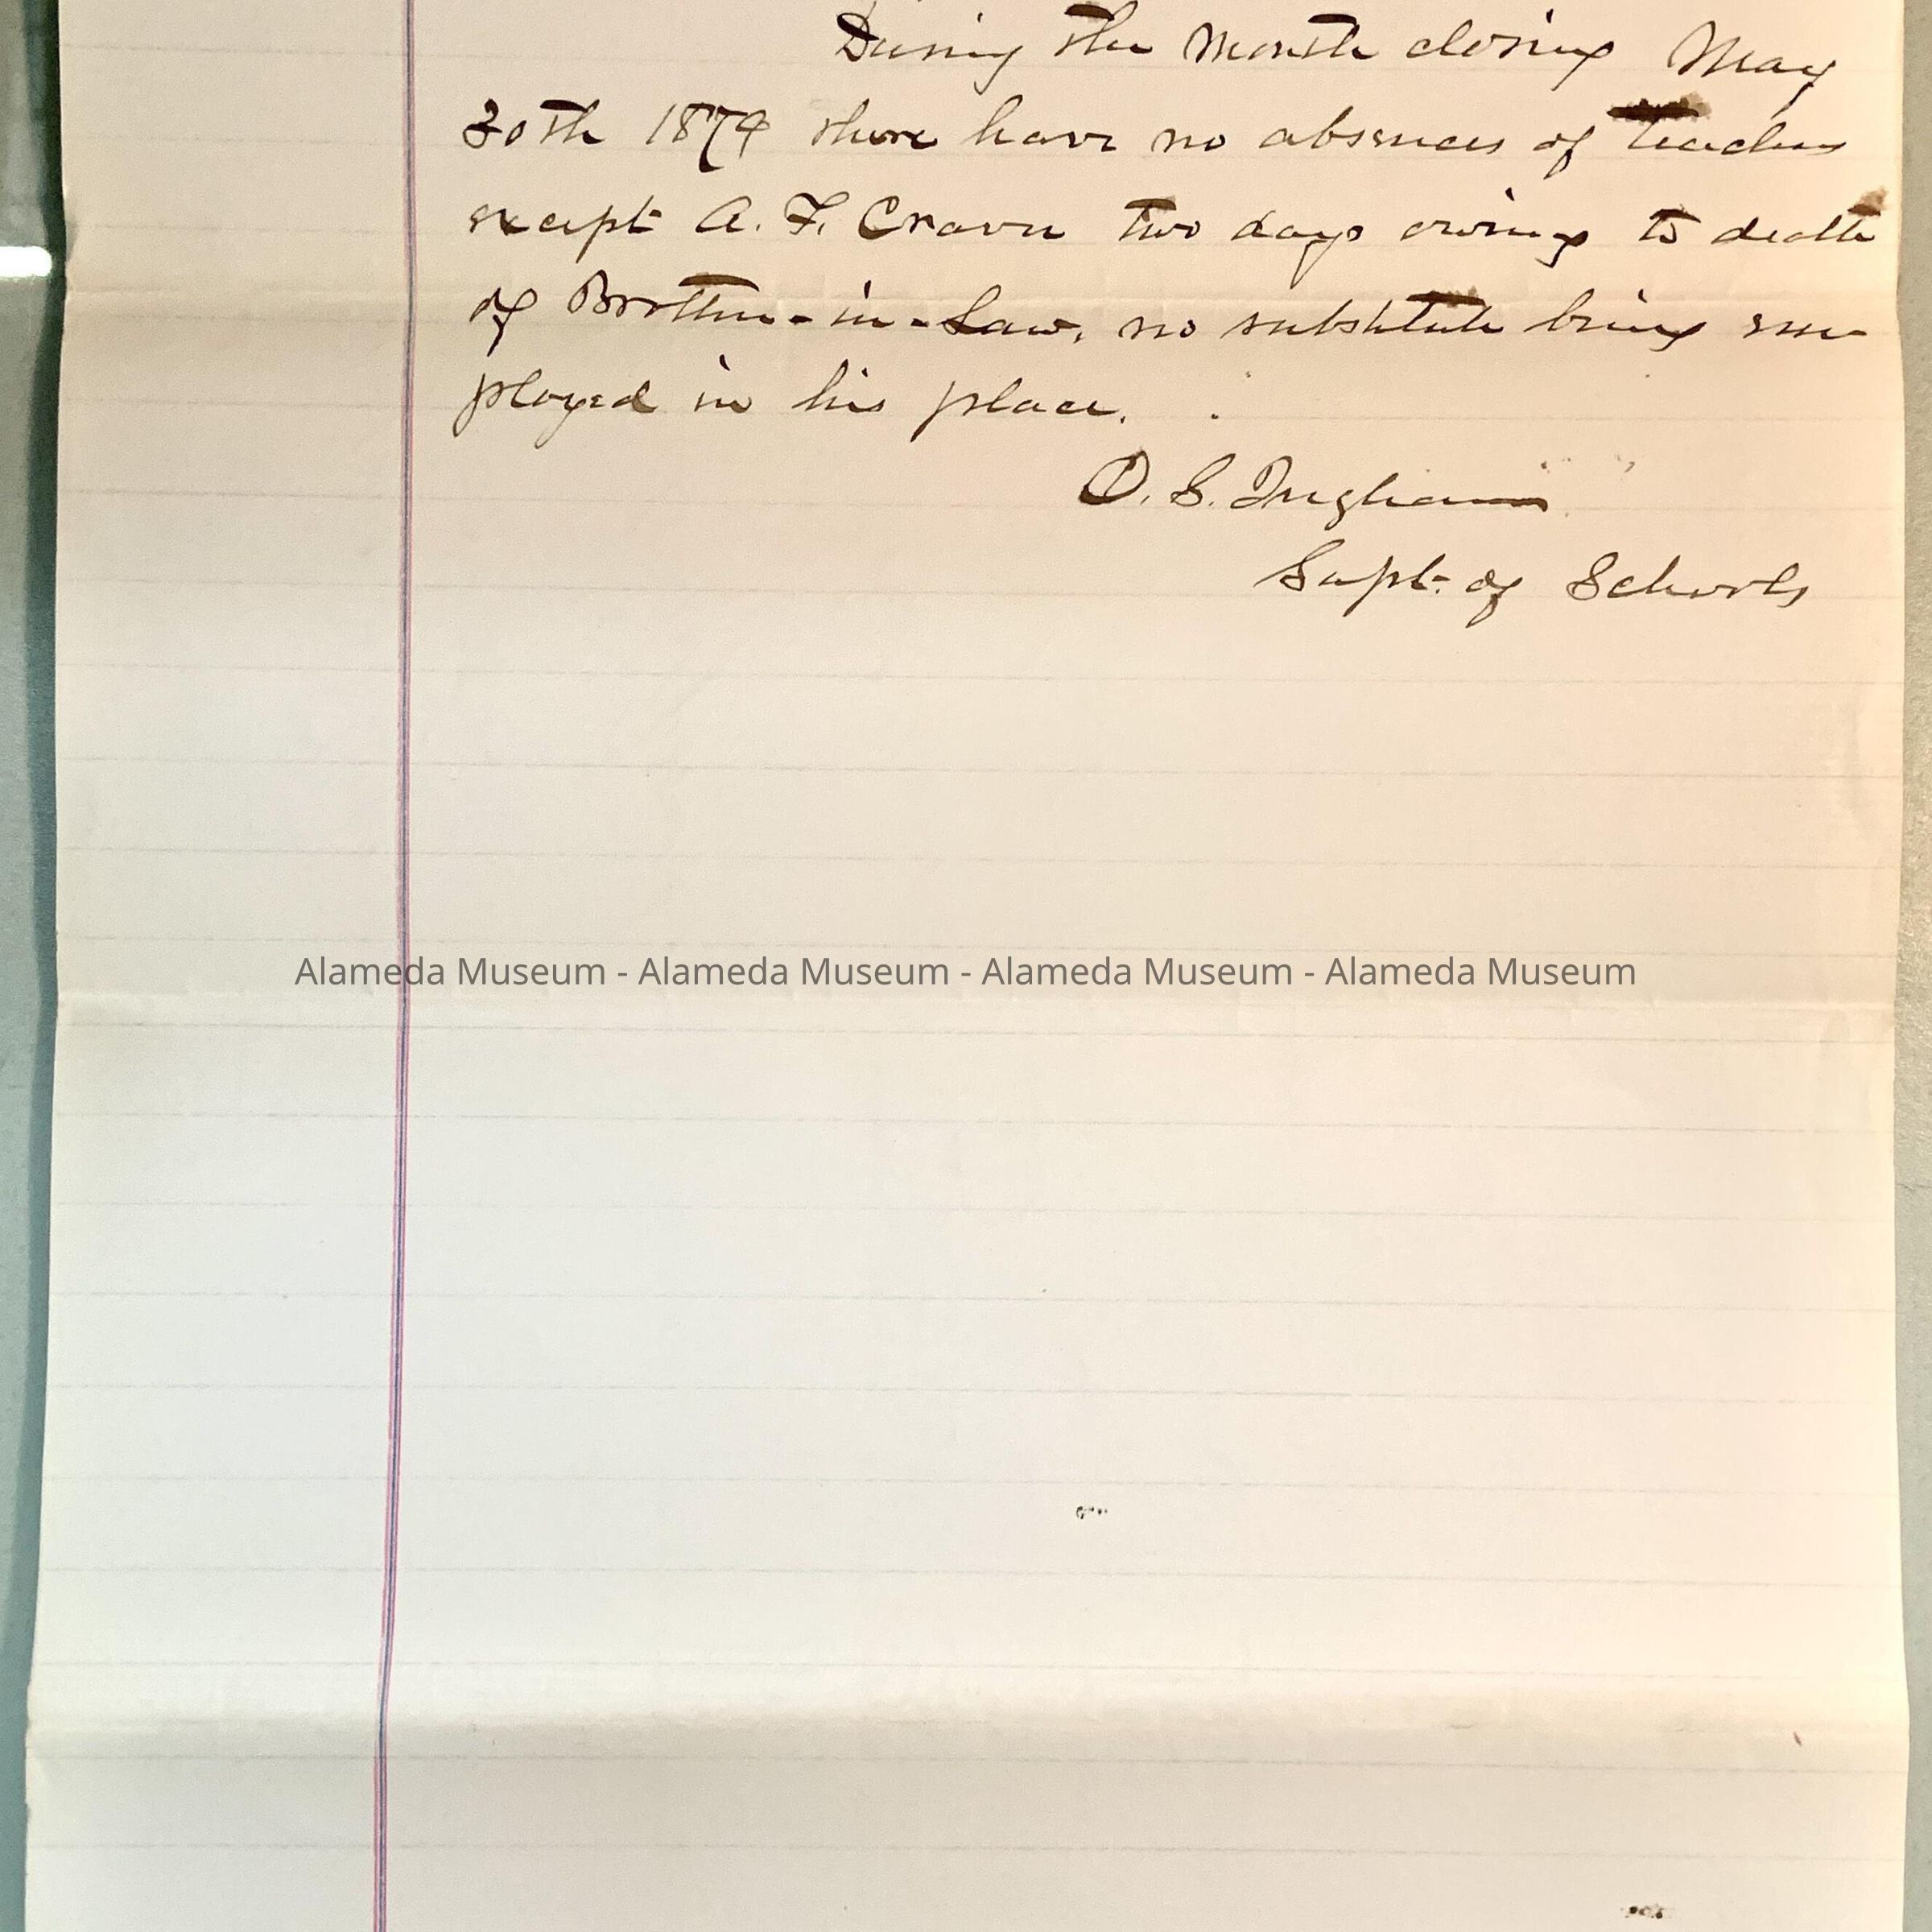 During the Month closing May
30th 1879 there have no absences of teachers
except A. F. Craven two days owing to death
of Brother-in-Law, no substitute being em-
ployed in his place.
O. S. Ingham
Supt. of Schools
Alameda Museum - Alameda Museum - Alameda Museum - Alameda Museum